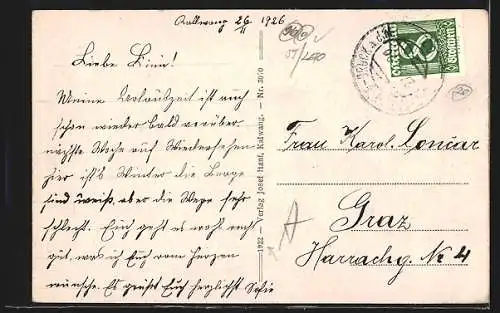 Kallwang 26/II 1926
Liebe Linni!
Meine Urlaubszeit ist auch
schon wieder bald vorüber,
nächste Woche auf Wiedersehen
hier ist's Winter die Berge
sind weiß, aber die Wege sehr
schlecht. Euch geht es wohl recht
gut, was ich Euch vom Herzen
wünsche. Es grüßt Euch herzlichst Sofie
1922 – Verlag Josef Hanf, Kalwang. – Nr. 3070
Österreich
8
Groschen
BRUCK a.d.
Frau Karol. Loncar
Graz
Harrachg. No 4